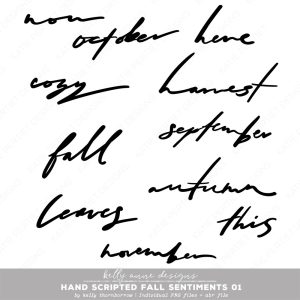 now
october
here
cozy
harvest
september
fall
autumn
leaves
this
november
kelly anne designs
HAND SCRIPTED FALL SENTIMENTS 01
by kelly thornborrow | Individual PNG files + abr file